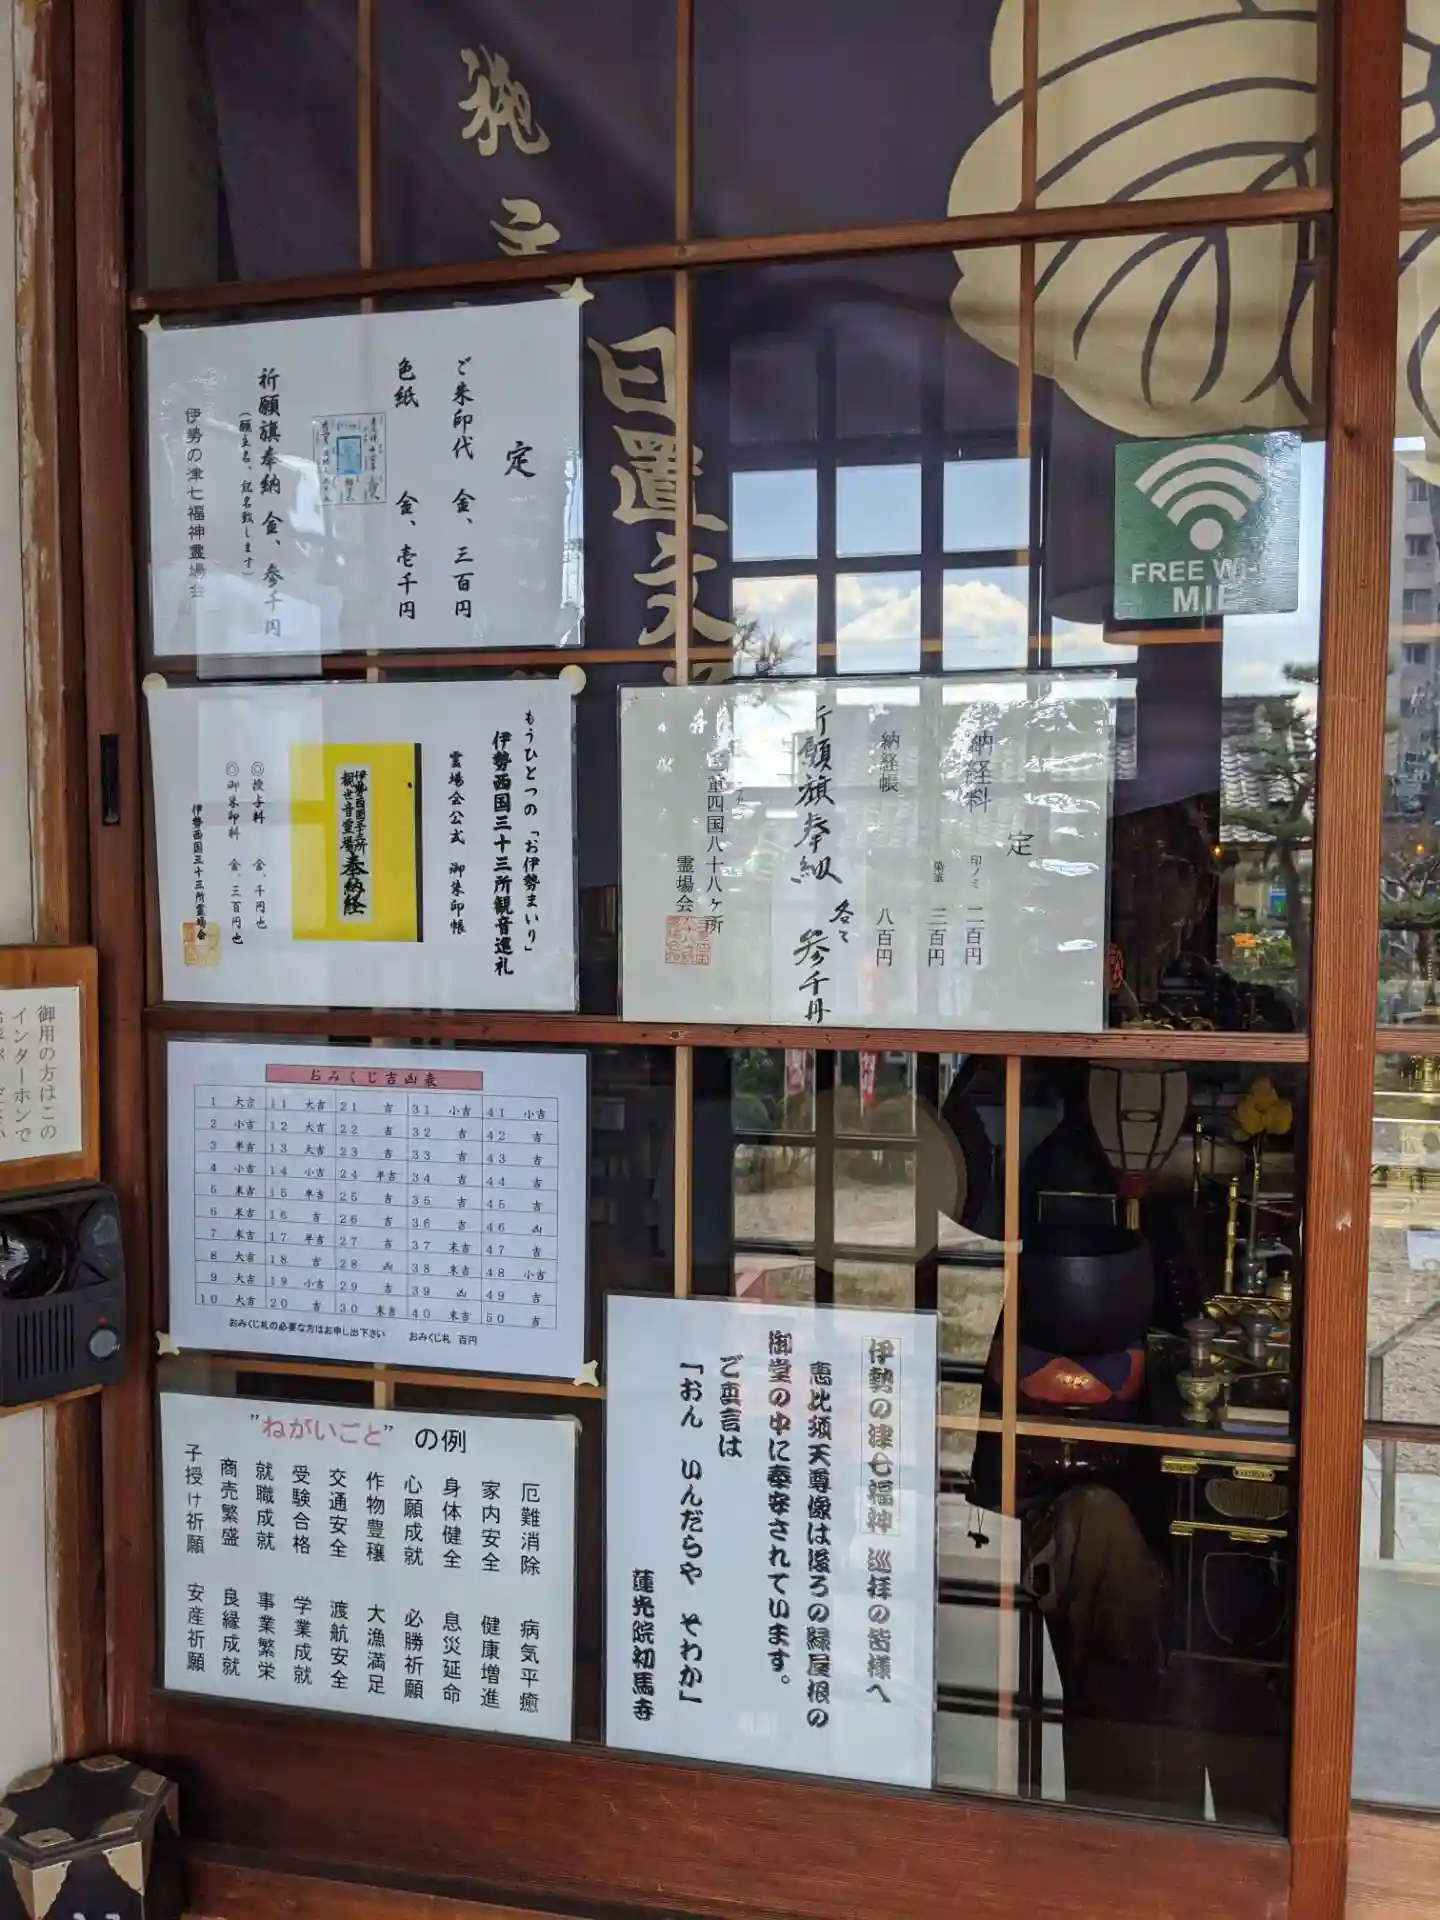 施
主
日置文
定
ご朱印代 金、三百円
色紙 金、壱千円
祈願旗奉納 金、参千円
(願主名、記名致します)
伊勢の津七福神霊場会
もうひとつの「お伊勢まいり」
伊勢西国三十三所観音巡礼
霊場会公式 御朱印帳
伊勢西国三十三所
観世音霊場
奉納経
◎授与料 金、千円也
◎御朱印料 金、三百円也
伊勢西国三十三所霊場会
定
納経料 印ノミ 二百円
三百円
納経帳 八百円
祈願旗奉納 各々 参千円
四国八十八ヶ所
霊場会
FREE Wi-
MIE
御用の方はこの
インターホンで
おみくじ吉凶表
1 大吉 11 大吉 21 吉 31 小吉 41 小吉
2 小吉 12 大吉 22 吉 32 吉 42 吉
3 半吉 13 大吉 23 吉 33 吉 43 吉
4 小吉 14 小吉 24 半吉 34 吉 44 吉
5 末吉 15 半吉 25 吉 35 吉 45 吉
6 末吉 16 吉 26 吉 36 吉 46 凶
7 末吉 17 半吉 27 吉 37 末吉 47 吉
8 大吉 18 吉 28 凶 38 末吉 48 小吉
9 大吉 19 小吉 29 吉 39 凶 49 吉
10 大吉 20 吉 30 末吉 40 末吉 50 吉
おみくじ札の必要な方はお申し出下さい おみくじ札 百円
"ねがいごと" の例
厄難消除 病気平癒
家内安全 健康増進
身体健全 息災延命
心願成就 必勝祈願
作物豊穣 大漁満足
交通安全 渡航安全
受験合格 学業成就
就職成就 事業繁栄
商売繁盛 良縁成就
子授け祈願 安産祈願
伊勢の津七福神 巡拝の皆様へ
恵比須天尊像は後ろの緑屋根の
御堂の中に奉安されています。
ご真言は
「おん いんだらや そわか」
蓮光院初馬寺